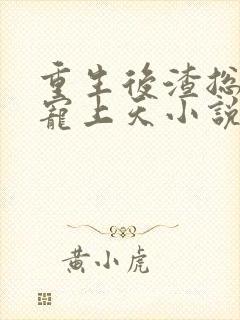 重生後渣总
寵上天小說
黄小虎